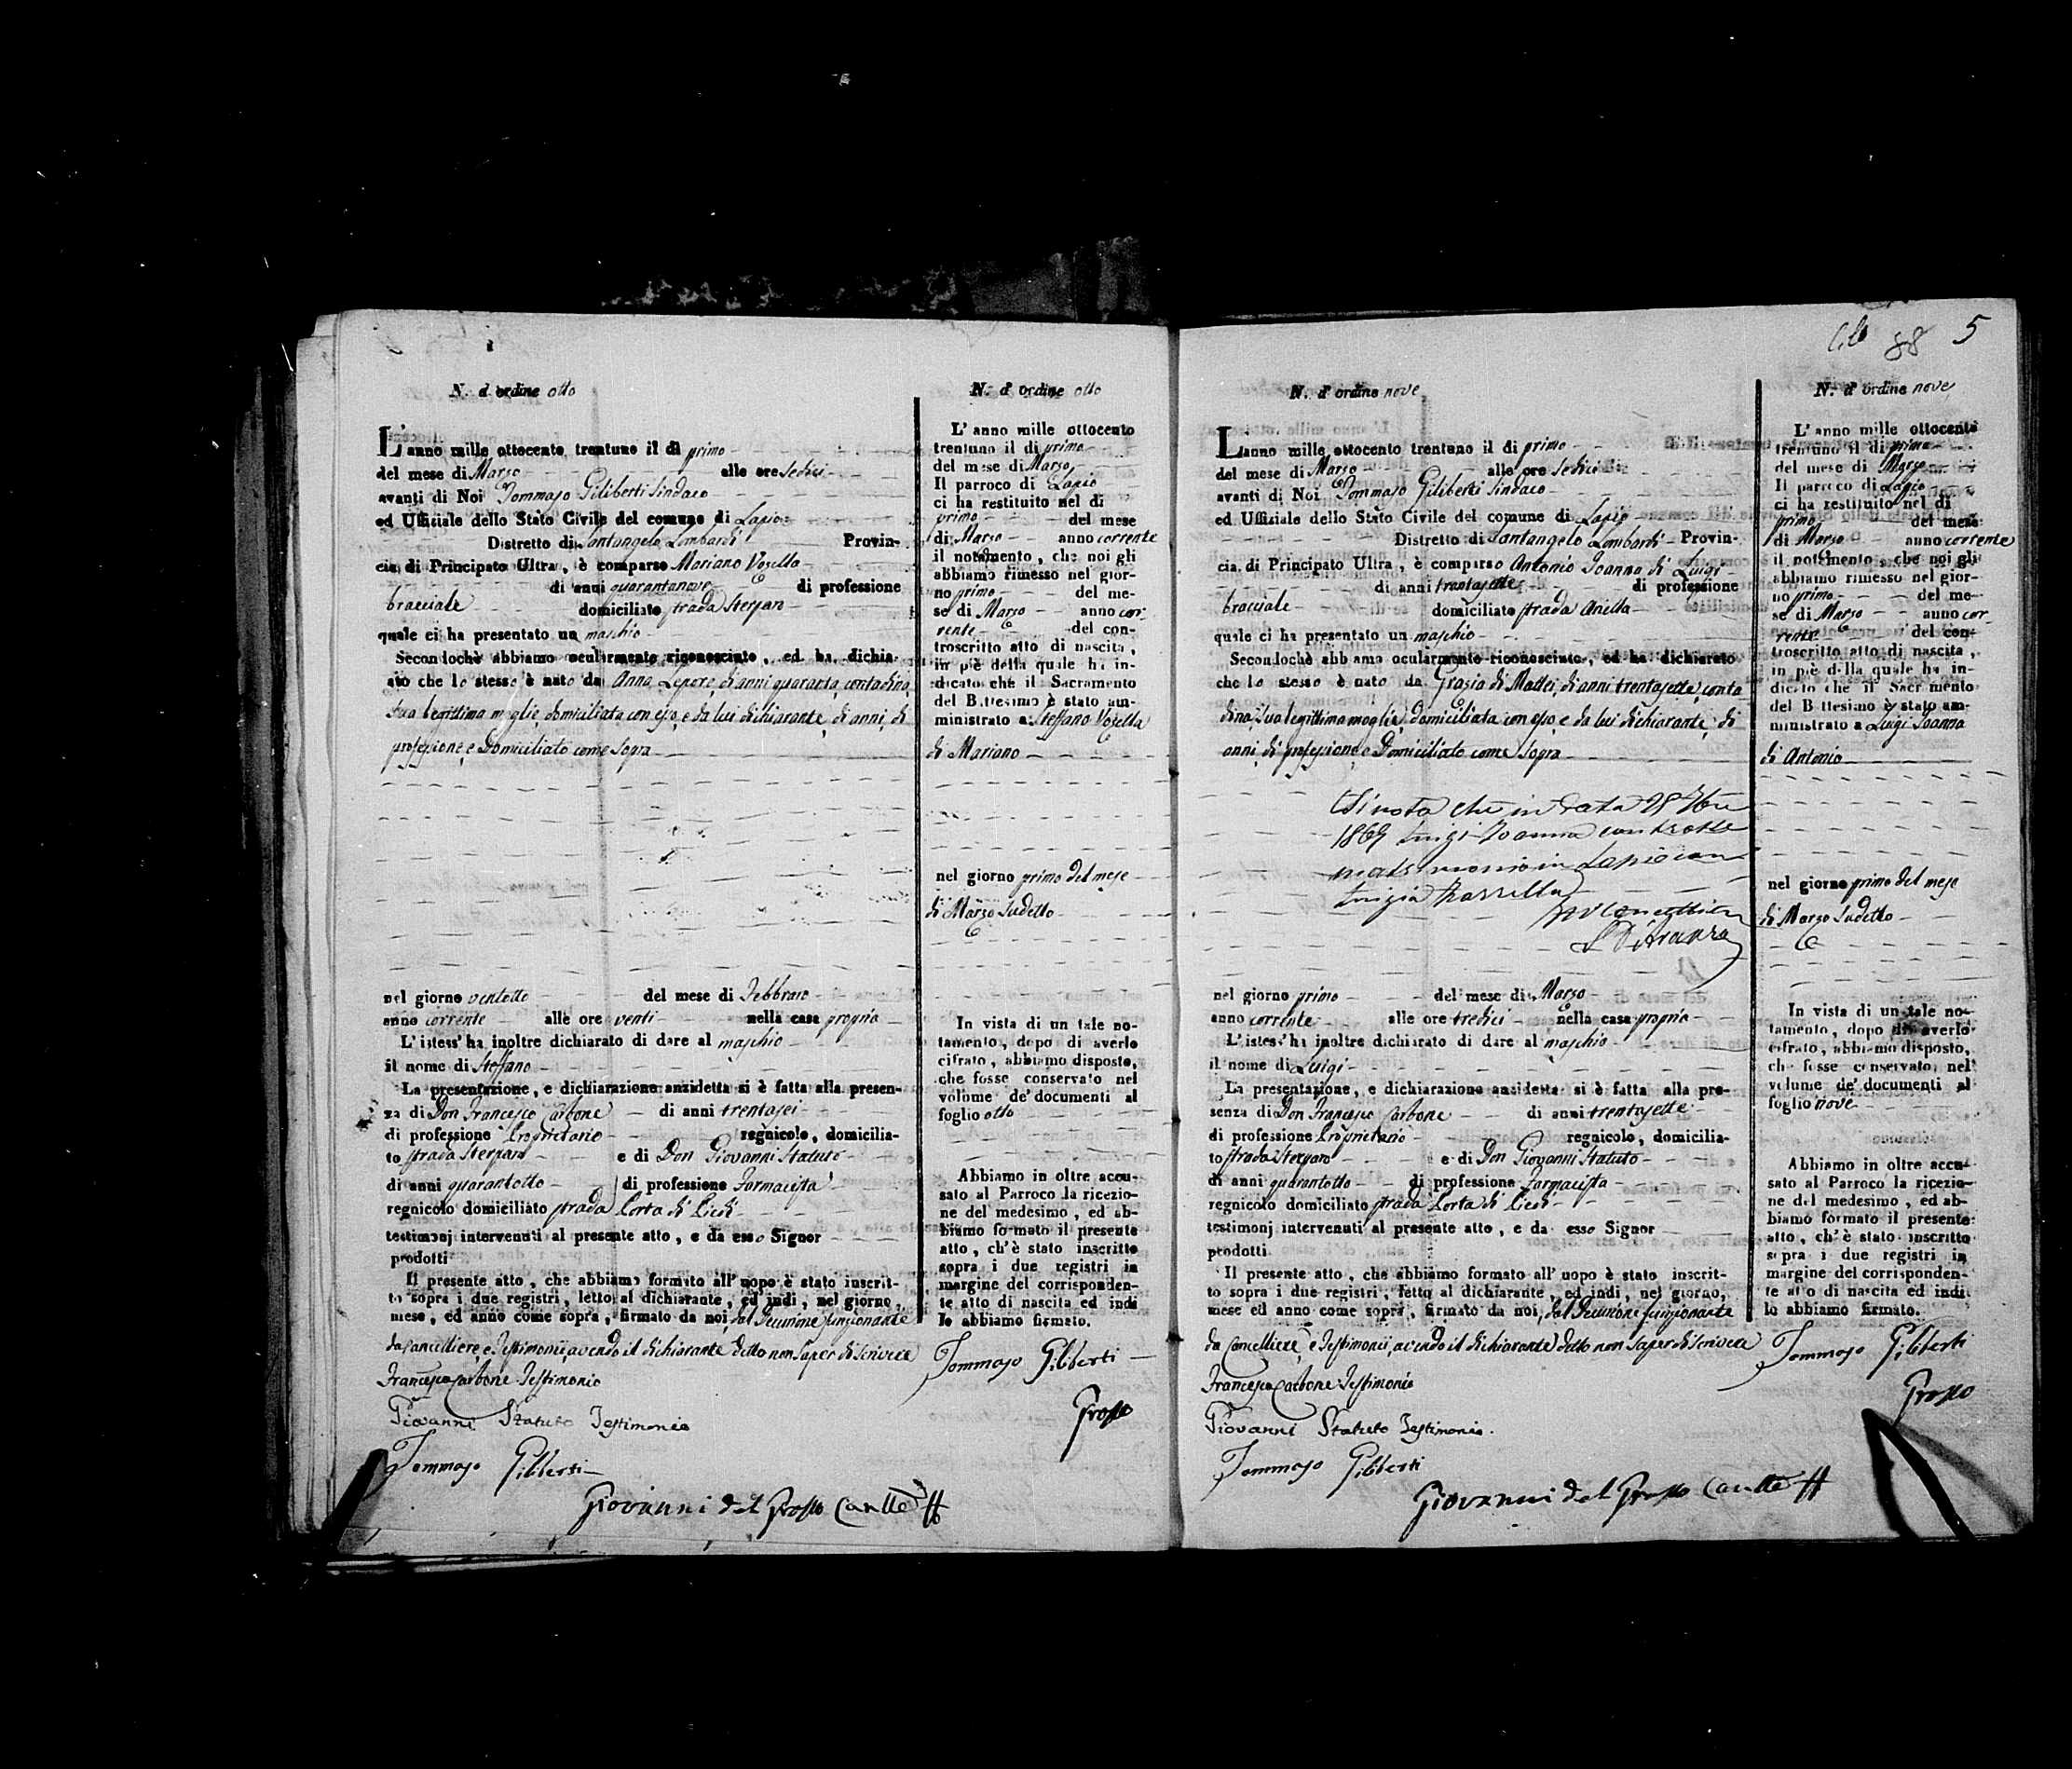 N. d'ordine otto
L'anno mille ottocento trentuno il dì primo
del mese di Marzo alle ore Sedici
avanti di Noi Tommaso Giliberti Sindaco
ed Uffiziale dello Stato Civile del comune di Lapio
Distretto di Santangelo Lombardi Provin-
cia di Principato Ultra, è comparso Mariano Vosella
di anni quarantanove di professione
bracciale domiciliato strada Sterparo
quale ci ha presentato un maschio
Secondochè abbiamo ocularmente riconosciuto, ed ha dichia-
ato che lo stesso è nato da Anna Lepore, di anni quaranta, contadina,
sua legittima moglie, domiciliata con esso, e da lui dichiarante, di anni, di
professione, e Domiciliato come sopra
nel giorno ventotto del mese di Febbraro
anno corrente alle ore venti nella casa propria
L'istess' ha inoltre dichiarato di dare al maschio
il nome di Steffano
La presentazione, e dichiarazione anzidetta si è fatta alla presen-
za di Don Francesco Carbone di anni trentasei
di professione Proprietario regnicolo, domicilia-
to strada Sterparo e di Don Giovanni Statuto
di anni quarantotto di professione Farmacista
regnicolo domiciliato strada Porta di Piedi
testimonj intervenuti al presente atto, e da esso Signor
prodotti
Il presente atto, che abbiamo formato all'uopo è stato inscrit-
to sopra i due registri, letto al dichiarante, ed indi, nel giorno,
mese, ed anno come sopra, firmato da noi, dal Decurione funzionante
da Cancelliere, e Testimonii, avendo il dichiarante detto non saper di scrivere
Francesco Carbone Testimonio
Giovanni Statuto Testimonio
Tommaso Giliberti
Giovanni del Grosso Canlle
N. d'ordine otto
L'anno mille ottocento
trentuno il dì primo
del mese di Marzo
Il parroco di Lapio
ci ha restituito nel dì
primo del mese
di Marzo anno corrente
il notamento, che noi gli
abbiamo rimesso nel gior-
no primo del me-
se di Marzo anno cor-
rente del con-
troscritto atto di nascita,
in piè della quale ha in-
dicato che il Sacramento
del Battesimo è stato am-
ministrato a Steffano Vosella
di Mariano
nel giorno primo del mese
di Marzo sudetto
In vista di un tale no-
tamento, dopo di averlo
cifrato, abbiamo disposto,
che fosse conservato nel
volume de' documenti al
foglio otto
Abbiamo in oltre accu-
sato al Parroco la ricezio-
ne del medesimo, ed ab-
biamo formato il presente
atto, ch'è stato inscritto
sopra i due registri in
margine del corrisponden-
te atto di nascita ed indi
lo abbiamo firmato.
Tommaso Giliberti
Grosso
88 5
N. d'ordine nove
L'anno mille ottocento trentuno il dì primo
del mese di Marzo alle ore Sedici
avanti di Noi Tommaso Giliberti Sindaco
ed Uffiziale dello Stato Civile del comune di Lapio
Distretto di Santangelo Lombardi Provin-
cia di Principato Ultra, è comparso Antonio Ioanna di Luigi
di anni trentasette di professione
bracciale domiciliato strada Ariella
quale ci ha presentato un maschio
Secondochè abbiamo ocularmente riconosciuto, ed ha dichiarato
che lo stesso è nato da Grazia di Mattei, di anni trentasette, conta
dina, sua legittima moglie, domiciliata con esso, e da lui dichiarante, di
anni, di professione, e Domiciliato come sopra
Si nota che in data 28 7bre
1869 Luigi Ioanna contrasse
matrimonio in Lapio con
nel giorno primo del mese di Marzo
anno corrente alle ore tredici nella casa propria
L'istess' ha inoltre dichiarato di dare al maschio
il nome di Luigi
La presentazione, e dichiarazione anzidetta si è fatta alla pre-
senza di Don Francesco Carbone di anni trentasette
di professione Proprietario regnicolo, domicilia-
to strada Sterparo e di Don Giovanni Statuto
di anni quarantotto di professione Farmacista
regnicolo domiciliato strada Porta di Piedi
testimonj intervenuti al presente atto, e da esso Signor
prodotti
Il presente atto, che abbiamo formato all'uopo è stato inscrit-
to sopra i due registri, letto al dichiarante, ed indi, nel giorno,
mese ed anno come sopra, firmato da noi, dal Decurione funzionante
da Cancelliere, e Testimonii, avendo il dichiarante detto non saper di scrivere
Francesco Carbone Testimonio
Giovanni Statuto Testimonio.
Tommaso Giliberti
Giovanni del Grosso Canlle
N. d'ordine nove
L'anno mille ottocento
trentuno il dì primo
del mese di Marzo
Il parroco di Lapio
ci ha restituito nel dì
primo del mese
di Marzo anno corrente
il notamento, che noi gli
abbiamo rimesso nel gior-
no primo del me-
se di Marzo anno cor-
rente del con-
troscritto atto di nascita,
in piè della quale ha in-
dicato che il Sacramento
del Battesimo è stato am-
ministrato a Luigi Ioanna
di Antonio
nel giorno primo del mese
di Marzo sudetto
In vista di un tale no-
tamento, dopo di averlo
cifrato, abbiamo disposto,
che fosse conservato nel
volume de' documenti al
foglio nove
Abbiamo in oltre accu-
sato al Parroco la ricezio-
ne del medesimo, ed ab-
biamo formato il presente
atto, ch'è stato inscritto
sopra i due registri in
margine del corrisponden-
te atto di nascita ed indi
lo abbiamo firmato.
Tommaso Giliberti
Grosso